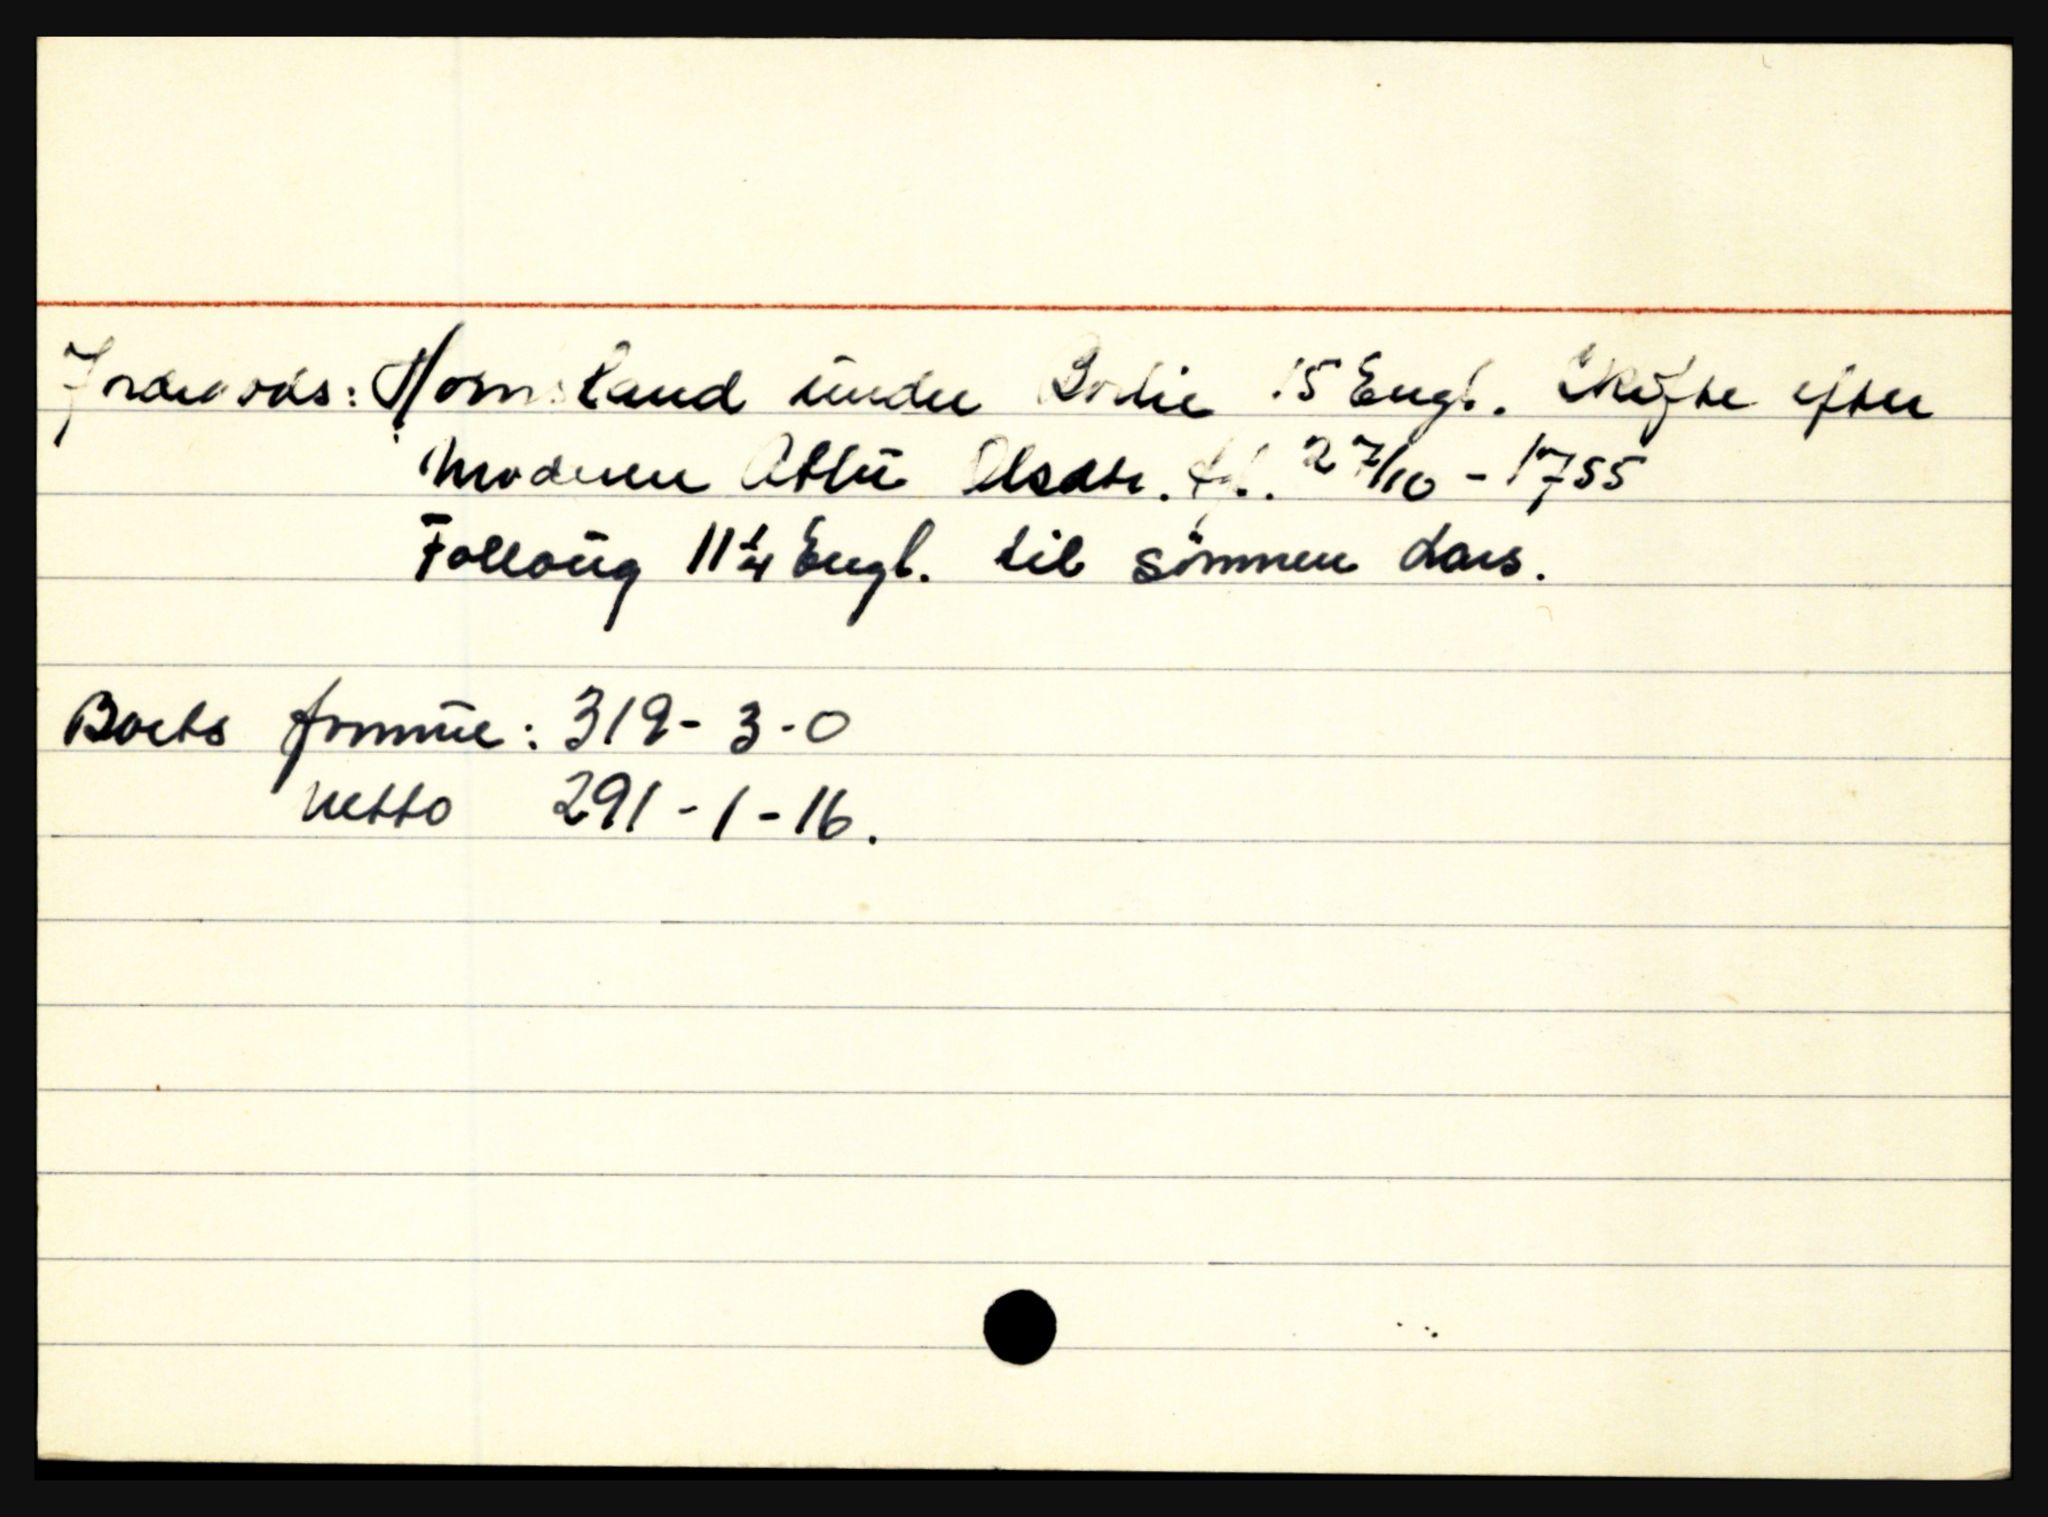 Jordegods: Hornsland under Bodlie 15 Engl. Skifte efter
moderen Atlu Olsdtr. tgl. 27/10 - 1755
Follaug 11 1/4 Engl. til sønnen Lars.
Boets formue: 319 - 3 - 0
netto 291 - 1 - 16.